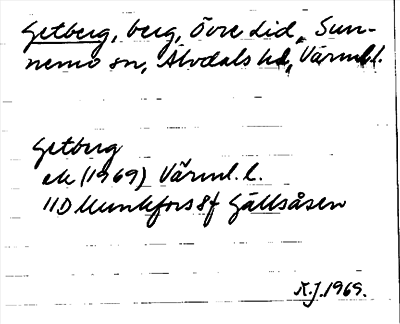 Getberg, berg, Övre Lid, Sun-
nemo sn, Älvdals hd, Värml.
Getberg
ek (1969) Värml. l.
11D Munkfors 8f Gällsåsen
R.J. 1969.